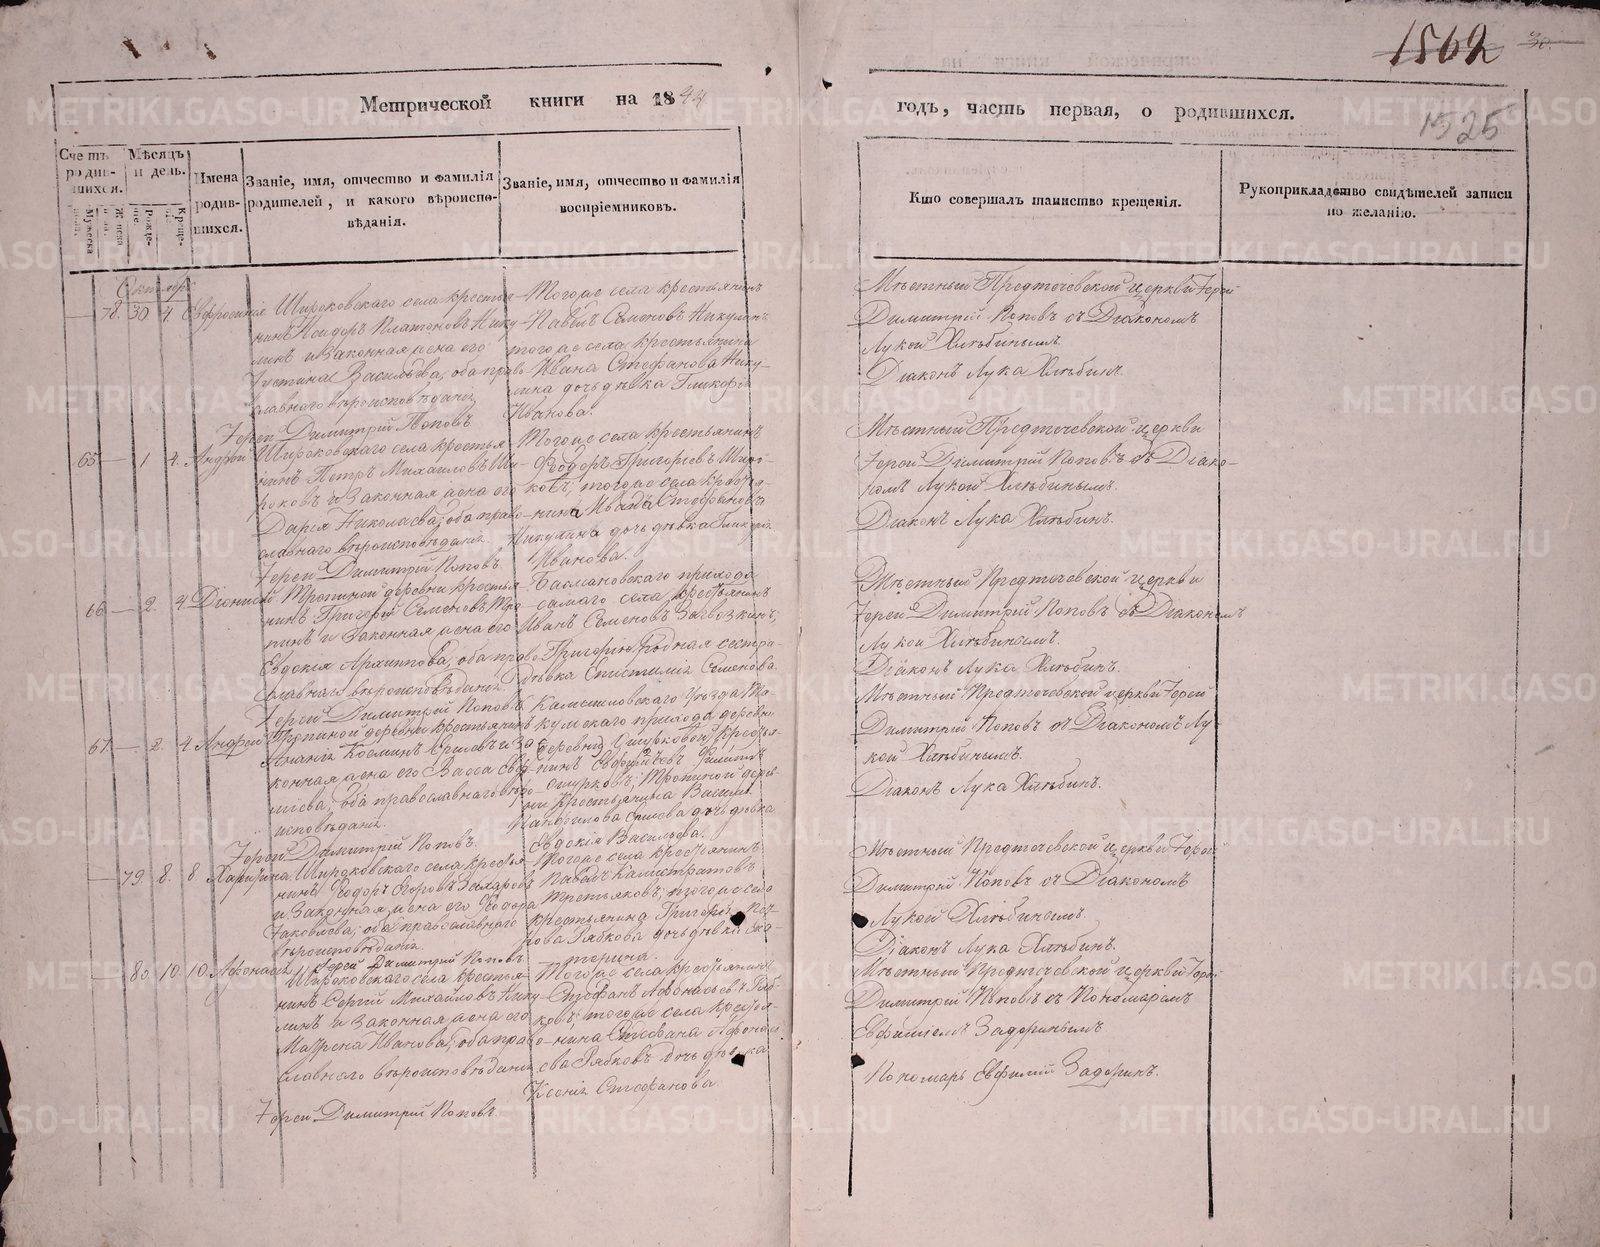 1562
30.
Метрической книги на 1844
годъ, часть первая, о родившихся.
1525
Счетъ родившихся.
Мужеска пола.
Женска пола.
Мѣсяцъ и день.
Рожденіе.
Крещеніе.
Имена родившихся.
Званіе, имя, отчество и фамилія родителей, и какого вѣроисповѣданія.
Званіе, имя, отчество и фамилія воспріемниковъ.
Кто совершалъ таинство крещенія.
Рукоприкладство свидѣтелей записи по желанію.
Октябрь
78. 30 4. Евфросинія
Широковскаго села крестья-
нинъ Исидоръ Платоновъ Нику-
линъ и законная жена его
Іустина Васильева, оба право-
славнаго вѣроисповѣданія
Іерей Димитрій Поповъ
Тогоже села крестьянинъ
Павелъ Семеновъ Никулинъ
тогоже села крестьянина
Ивана Стефанова Нику-
лина дочь дѣвка Гликерія
Иванова.
Мѣстный Предтечевской церкви Іерей
Димитрій Поповъ съ Діакономъ
Лукой Хлѣбинымъ
Діаконъ Лука Хлѣбинъ.
65 — 1 4. Андрей
Широковскаго села крестья-
нинъ Петръ Михаиловъ Ши-
роковъ и законная жена его
Дарія Николаева, оба право-
славнаго вѣроисповѣданія
Іерей Димитрій Поповъ
Тогоже села крестьянинъ
Ѳеодоръ Григорьевъ Широ-
ковъ, тогоже села крестья-
нина Ивана Стефанова
Никулина дочь дѣвка Гликерія
Иванова.
Мѣстный Предтечевской церкви
Іерей Димитрій Поповъ съ Діако-
номъ Лукой Хлѣбинымъ.
Діаконъ Лука Хлѣбинъ.
66 — 2. 4. Діонисій
Тропиной деревни крестья-
нинъ Григорій Семеновъ Тро-
пинъ и законная жена его
Евдокія Архиппова, оба право-
славнаго вѣроисповѣданія
Іерей Димитрій Поповъ
Басмановскаго прихода
самаго села крестьянинъ
Иванъ Семеновъ Загвозкинъ,
Григорію родная сестра
дѣвка Епистимія Семенова.
Мѣстный Предтечевской церкви
Іерей Димитрій Поповъ съ Діакономъ
Лукой Хлѣбинымъ.
Діаконъ Лука Хлѣбинъ.
67 — 2. 4 Андрей
Тропиной деревни крестьянинъ
Ананія Козминъ и за-
конная жена его Васса
оба православнаго вѣро-
исповѣданія.
Іерей Димитрій Поповъ.
Камышловскаго уѣзда
прихода деревни
крестья-
нинъ
Тропиной дерев-
ни крестьянина Василія
дочь дѣвка
Евдокія Васильева.
Мѣстный Предтечевской церкви Іерей
Димитрій Поповъ съ Діакономъ Лу-
кой Хлѣбинымъ.
Діаконъ Лука Хлѣбинъ.
— 79. 8. 8. Харитина
Широковскаго села крестья-
нинъ Ѳедоръ Егоровъ Захаровъ
и законная жена его Ѳедора
Іаковлева, оба православнаго
вѣроисповѣданія.
Іерей Димитрій Поповъ
Тогоже села крестьянинъ
Павелъ Калистратовъ
Третьяковъ; тогоже села
крестьянина Григорія Пет-
рова Рябкова дочь дѣвка Ека-
терина.
Мѣстный Предтечевской церкви Іерей
Димитрій Поповъ съ Діакономъ
Лукой Хлѣбинымъ.
Діаконъ Лука Хлѣбинъ.
— 80 10. 10. Афонасія
Широковскаго села крестья-
нинъ Сергій Михаиловъ Нику-
линъ и законная жена его
Матрена Иванова, оба право-
славнаго вѣроисповѣданія
Іерей Димитрій Поповъ.
Тогоже села крестьянинъ
Стефанъ Афонасьевъ Ряб-
ковъ; тогоже села крестья-
нина Стефана Афонась-
ева Рябковъ дочь дѣвка
Ксенія Стефанова.
Мѣстный Предтечевской церкви Іерей
Димитрій Поповъ съ Пономаремъ
Евфиміемъ Задоринымъ
Пономарь Евфимій Задоринъ.
METRIKI.GASO-URAL.RU